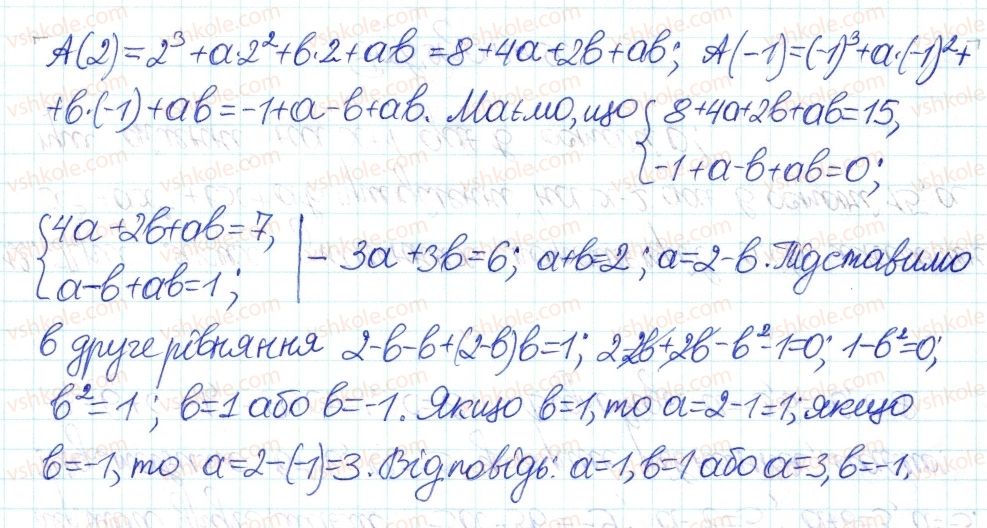 A(2)=2³+a·2²+b·2+ab=8+4a+2b+ab; A(-1)=(-1)³+a·(-1)²+
+b·(-1)+ab=-1+a-b+ab. Маємо, що { 8+4a+2b+ab=15,
{ -1+a-b+ab=0;
{ 4a+2b+ab=7, | - 3a+3b=6; a+b=2; a=2-b. Підставимо
{ a-b+ab=1;
в друге рівняння 2-b-b+(2-b)b=1; 2-2b+2b-b²-1=0; 1-b²=0;
b²=1; b=1 або b=-1. Якщо b=1, то a=2-1=1; якщо
b=-1, то a=2-(-1)=3. Відповідь: a=1, b=1 або a=3, b=-1.